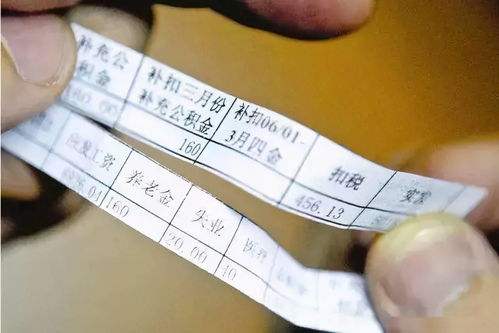 补充公
积金
160.00
补扣三月份
补充公积金
160
补扣06/01-
3月四金
扣税
456.13
实发
工资
养老金
160
失业
20.00
医疗
40